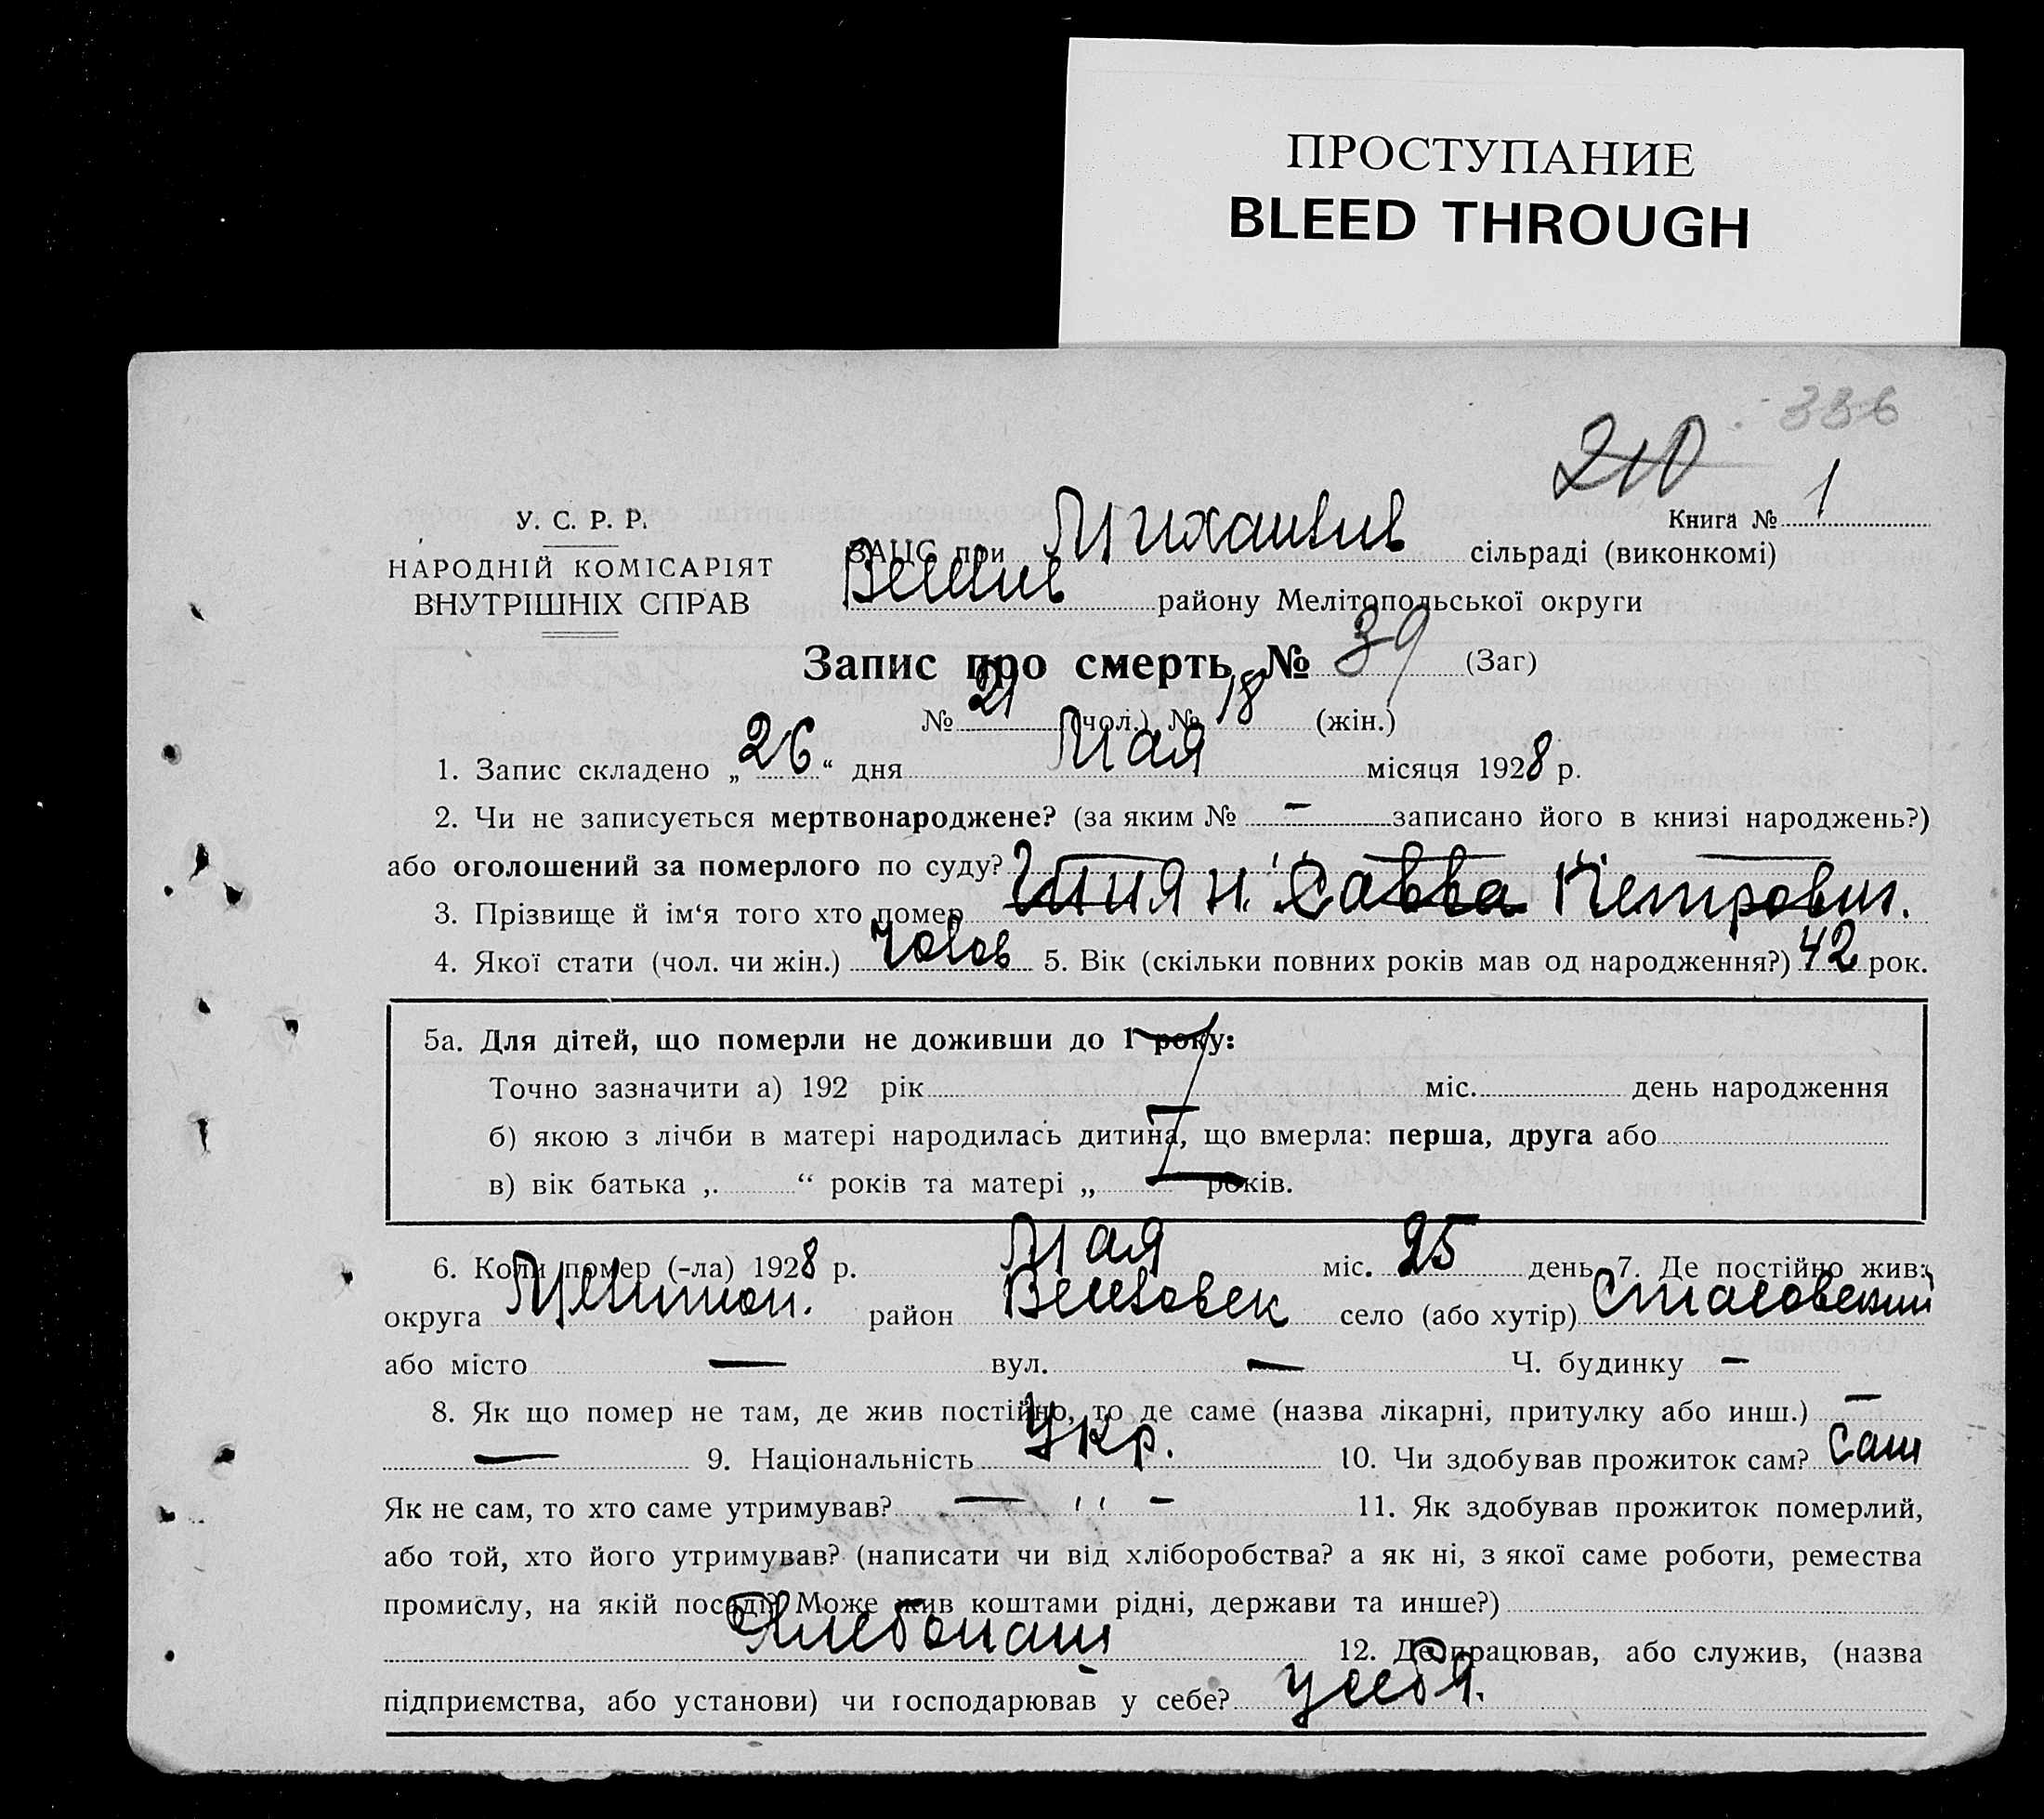 ПРОСТУПАНИЕ
BLEED THROUGH
336
210
У. С. Р. Р.
НАРОДНІЙ КОМІСАРІЯТ
ВНУТРІШНІХ СПРАВ
Книга № 1
ЗАГС при Михайлів сільраді (виконкомі)
району Мелітопольської округи
Запис про смерть № 39 (Заг)
№ 21 (чол.) № 18 (жін.)
1. Запис складено „26“ дня Мая місяця 1928 р.
2. Чи не записується мертвонароджене? (за яким № – записано його в книзі народжень?)
або оголошений за померлого по суду?
3. Прізвище й ім‘я того хто помер Савва Петрович.
4. Якої стати (чол. чи жін.) Чолов 5. Вік (скільки повних років мав од народження?) 42 рок.
5а. Для дітей, що померли не доживши до 1 року:
Точно зазначити а) 192 рік міс. день народження
б) якою з лічби в матері народилась дитина, що вмерла: перша, друга або
в) вік батька „ “ років та матері „ років.
6. Коли помер (-ла) 1928 р. Мая міс. 25 день 7. Де постійно жив:
округа Мелитоп. район село (або хутір)
або місто — вул. — Ч. будинку –
8. Як що помер не там, де жив постійно, то де саме (назва лікарні, притулку або инш.) –
— 9. Національність Укр. 10. Чи здобував прожиток сам? Сам
Як не сам, то хто саме утримував? — ׳׳ – 11. Як здобував прожиток померлий,
або той, хто його утримував? (написати чи від хліборобства? а як ні, з якої саме роботи, ремества
промислу, на якій посаді? Може жив коштами рідні, держави та инше?)
Хлебопаш 12. Де працював, або служив, (назва
підприємства, або установи) чи господарював у себе? у себя.